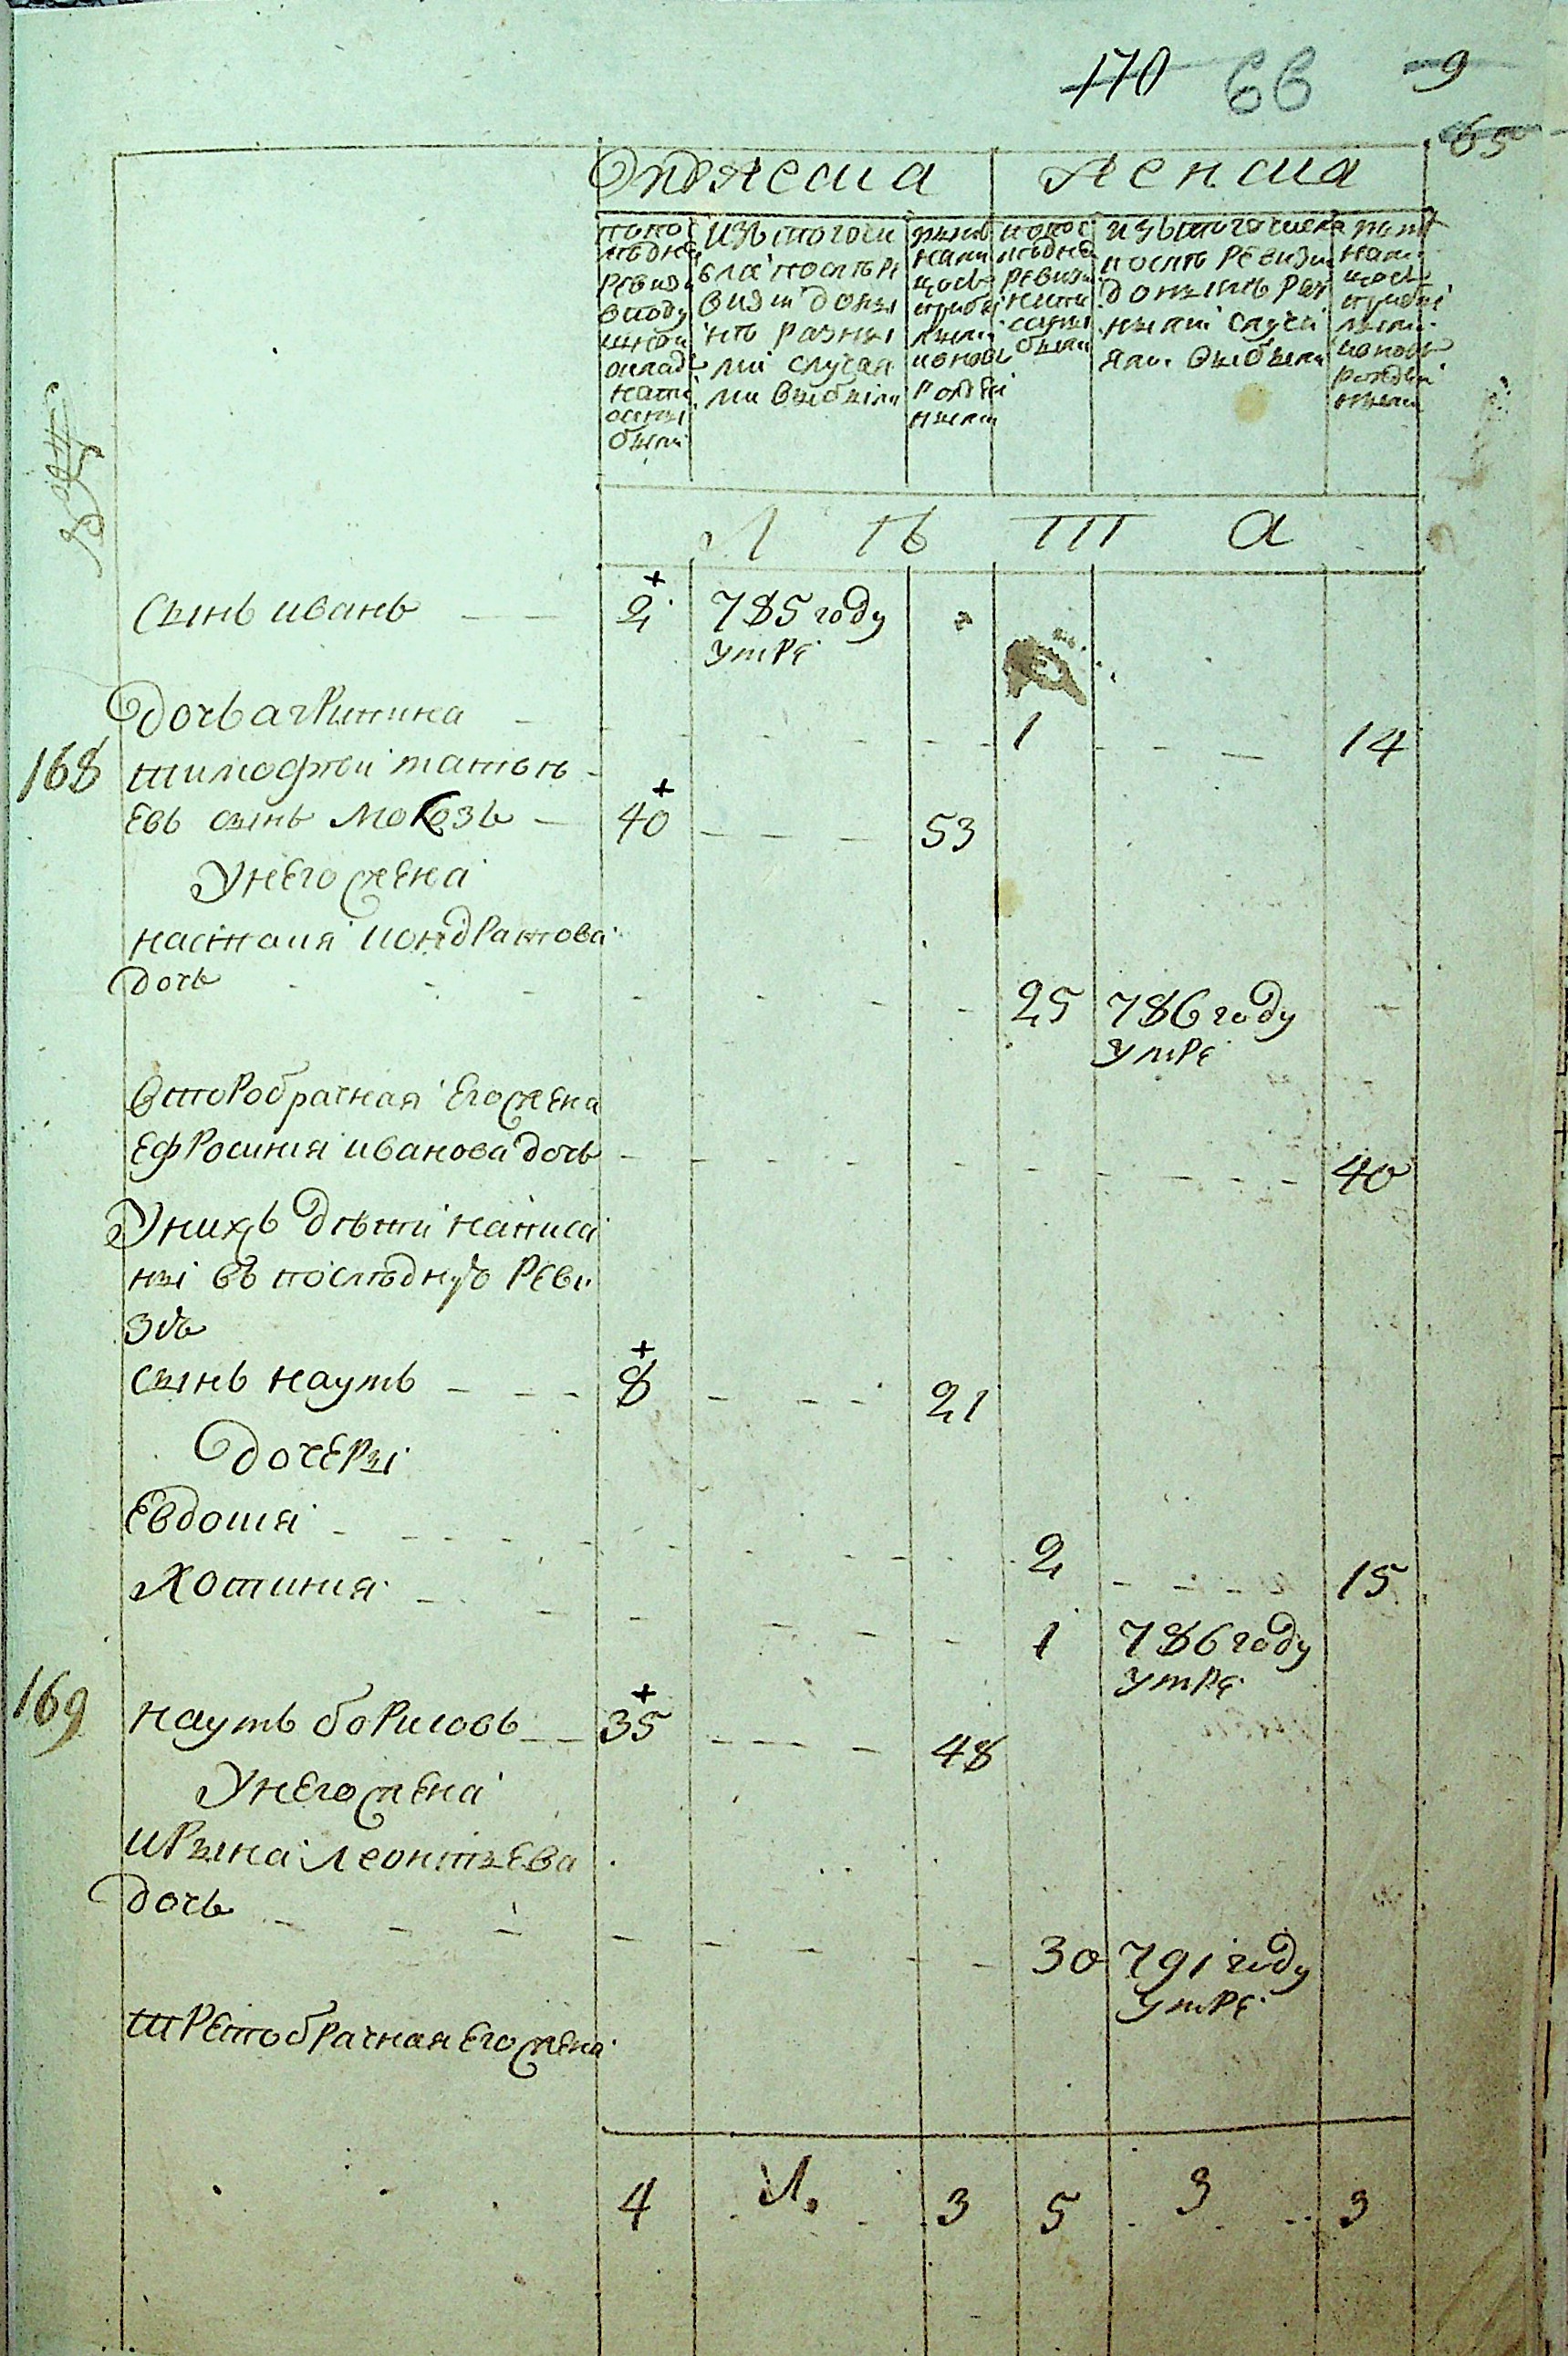 170 66 9
65
Мужеска женска
по пос
лѣдне
ревизи
в поду
шной
оклад
напи
саны
были
изъ того чи
сла послѣ ре
визи до ны
нѣ разны
ми случая
ми выбыли
ныне
нали
цость
с прибы
лыми
и вновь
рожде
нными
по пос
лѣдне
ревизи
напи
саны
были
изъ того числа
послѣ ревизи
до нынѣ раз
ными случа
ями выбыли
ныне
нали
цость
с прибы
лыми
и вновь
рожде
нными
Л ѣ т а
сынъ иванъ 2 785 году
умре
дочь агрипина 1 14
168 тимофѣй матвѣ
евъ сынъ мокозъ 40 53
У него жена
настасия кондратова
дочь 25 786 году
умре
второбрачная его жена
ефросиния иванова дочь 40
У нихъ дѣти написа
ны въ последную реви
зию
сынъ наумъ 8 21
дочеры
Евдокия 2 15
Хотиния 1 786 году
умре
169 наумъ борисовъ 35 48
У него жена
ирына леонтьева
дочь 30 791 году
умре
третобрачная его жена
4 1. 3 5 3 3